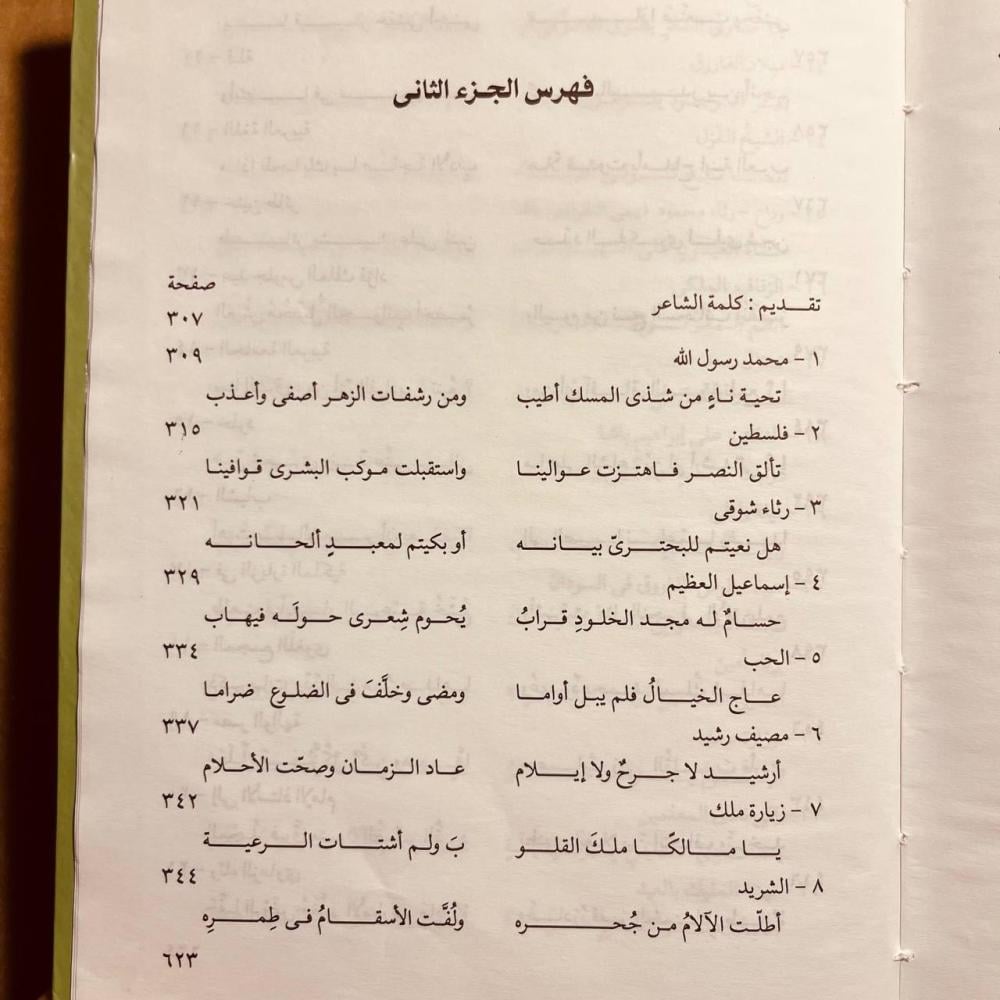 فهرس الجزء الثانى
صفحة
تقديم : كلمة الشاعر ٣٠٧
١ - محمد رسول الله ٣٠٩
تحية ناءٍ من شذى المسك أطيب ومن رشفات الزهر أصفى وأعذب
٢ - فلسطين ٣١٥
تألق النصر فاهتزت عوالينا واستقبلت موكب البشرى قوافينا
٣ - رثاء شوقى ٣٢١
هل نعيتم للبحترىّ بيانه أو بكيتم لمعبدٍ ألحانه
٤ - إسماعيل العظيم ٣٢٩
حسامٌ له مجد الخلودِ قرابُ يُحوم شِعرى حولَه فيهاب
٥ - الحب ٣٣٤
عاج الخيالُ فلم يبل أواما ومضى وخلَّفَ فى الضلوع ضراما
٦ - مصيف رشيد ٣٣٧
أرشيد لا جرحٌ ولا إيلام عاد الزمان وصحّت الأحلام
٧ - زيارة ملك ٣٤٢
يا مالكًا ملكَ القلو بَ ولم أشتات الرعية
٨ - الشريد ٣٤٤
أطلّت الآلامُ من جُحره ولُفَّت الأسقامُ فى طِمرِهِ
٦٢٣